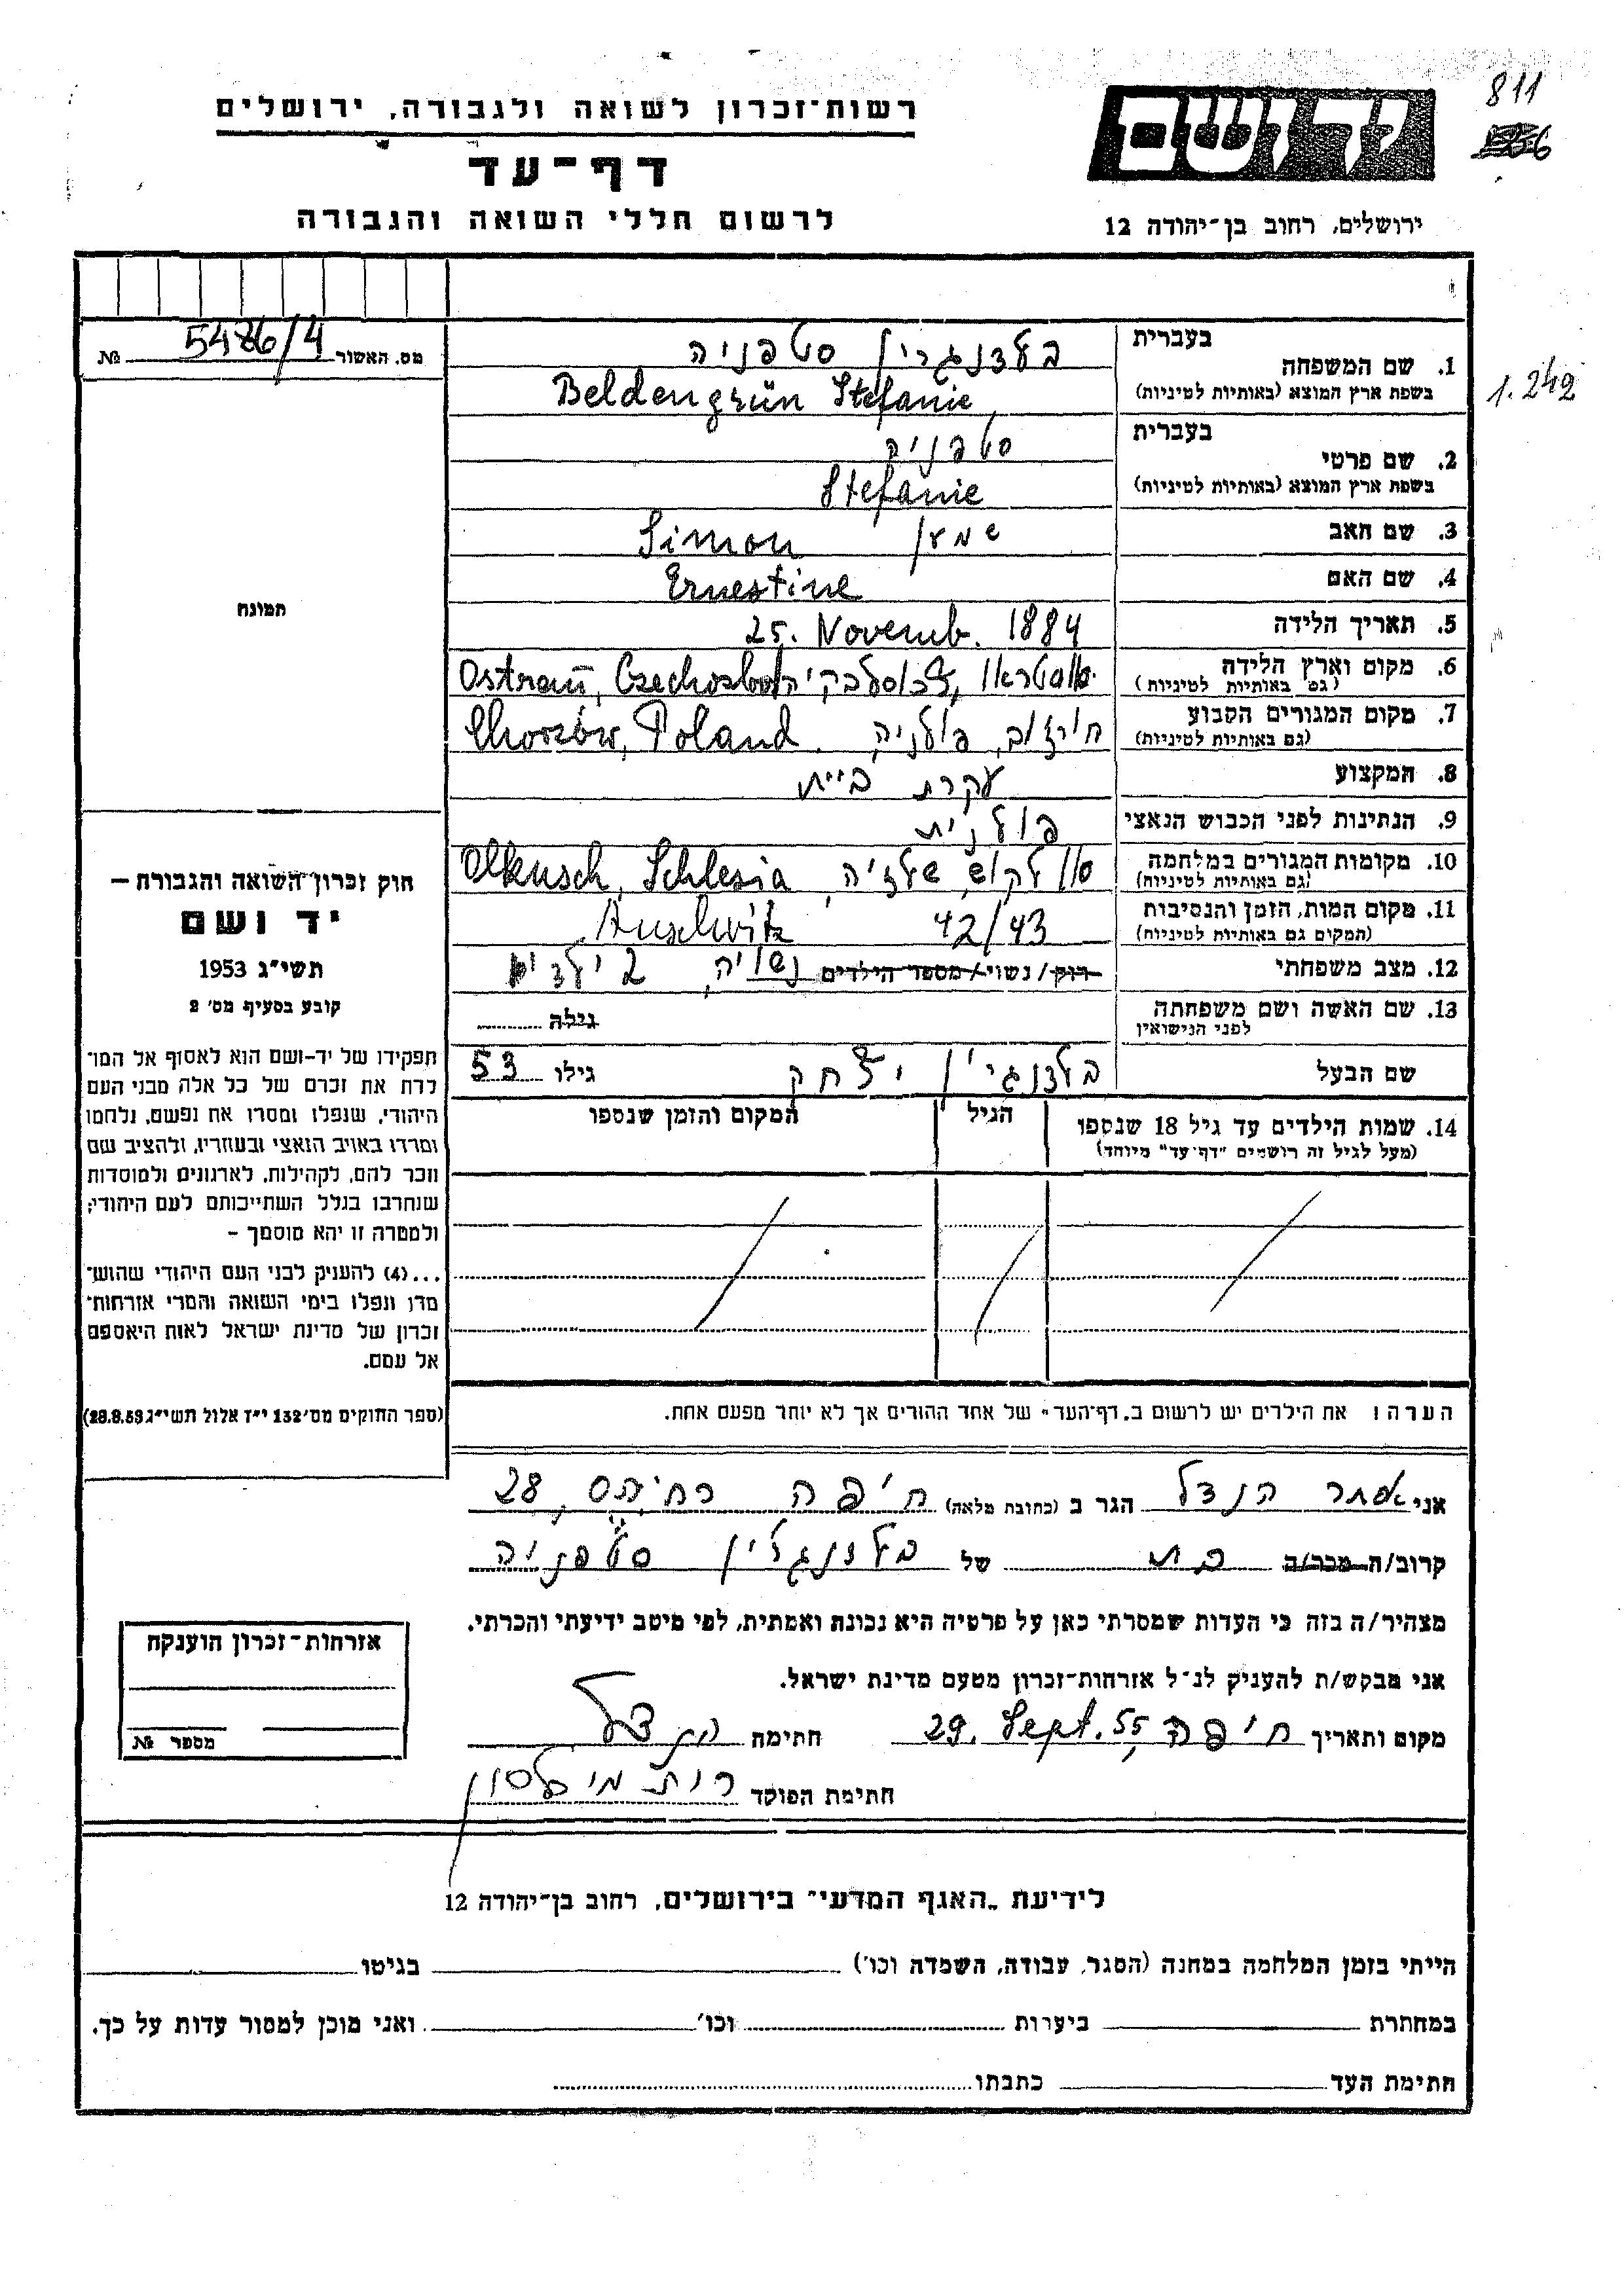 811
רשות-זכרון לשואה ולגבורה, ירושלים
יד ושם
דף-עד
לרשום חללי השואה והגבורה
ירושלים, רחוב בן-יהודה 12
מס. האשור 5486/4 №
1.242
1. שם המשפחה בעברית בלדנגרין סטפניה
בשפת ארץ המוצא (באותיות לטיניות) Beldengrün Stefanie
2. שם פרטי בעברית סטפניה
בשפת ארץ המוצא (באותיות לטיניות) Stefanie
3. שם האב שמעון Simon
4. שם האם Ernestine
5. תאריך הלידה 25. Novemb. 1884
6. מקום וארץ הלידה
(גם באותיות לטיניות) Ostrau,
7. מקום המגורים הקבוע
(גם באותיות לטיניות) חורזוב, פולניה. Chorzów, Poland
8. המקצוע עקרת בית
9. הנתינות לפני הכבוש הנאצי פולנית
10. מקומות המגורים במלחמה
(גם באותיות לטיניות) שלזיה, Olkusch, Schlesia
11. מקום המות, הזמן והנסיבות
(המקום גם באותיות לטיניות) 42/43 Auschwitz
12. מצב משפחתי רווק/נשוי/מספר הילדים נשויה, 2 ילדים
13. שם האשה ושם משפחתה
לפני הנישואין גילה
שם הבעל יצחק גילו 53
14. שמות הילדים עד גיל 18 שנספו
(מעל לגיל זה רושמים "דף-עד" מיוחד)
הגיל
המקום והזמן שנספו
הערה: את הילדים יש לרשום ב"דף-העד" של אחד ההורים אך לא יותר מפעם אחת.
תמונה
חוק זכרון השואה והגבורה —
יד ושם
תשי"ג 1953
קובע בסעיף מס' 2
תפקידו של יד-ושם הוא לאסוף אל המו-
לדת את זכרם של כל אלה מבני העם
היהודי, שנפלו ומסרו את נפשם, נלחמו
ומרדו באויב הנאצי ובעוזריו, ולהציב שם
וזכר להם, לקהילות, לארגונים ולמוסדות
שנחרבו בגלל השתייכותם לעם היהודי;
ולמטרה זו יהא מוסמך –
...(4) להעניק לבני העם היהודי שהוש-
מדו ונפלו בימי השואה והמרי אזרחות-
זכרון של מדינת ישראל לאות היאספם
אל עמם.
(ספר החוקים מס' 132 י"ז אלול תשי"ג 28.8.53)
אני אסתר הנדל הגר ב (כתובת מלאה) חיפה 28
קרוב/ה מכר/ה בת של סטפניה
מצהיר/ה בזה כי העדות שמסרתי כאן על פרטיה היא נכונה ואמתית, לפי מיטב ידיעתי והכרתי.
אני מבקש/ת להעניק לנ"ל אזרחות-זכרון מטעם מדינת ישראל.
מקום ותאריך חיפה 29. Sept. 55 חתימה הנדל
חתימת הפוקד רות
אזרחות-זכרון הוענקה
מספר №
לידיעת "האגף המדעי" בירושלים, רחוב בן-יהודה 12
הייתי בזמן המלחמה במחנה (הסגר, עבודה, השמדה וכו') בגיטו
במחתרת ביערות וכו' ואני מוכן למסור עדות על כך.
חתימת העד כתבתו